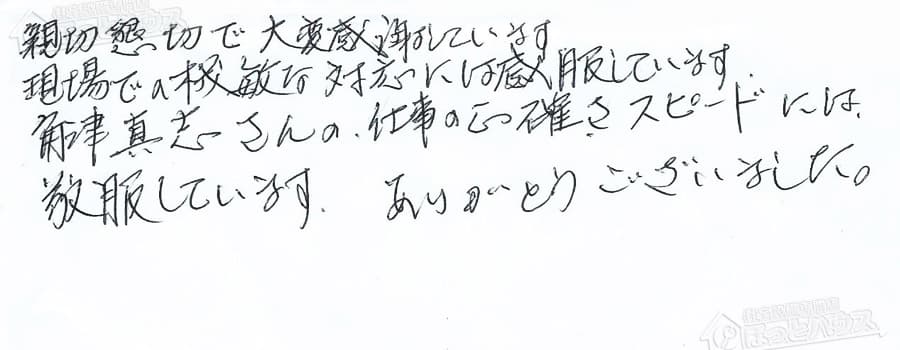 親切懇切で大変感謝しています
現場での機敏な対応には感服しています.
津真志さんの、仕事の正確さスピードには、
敬服しています. ありがとうございました。
ほっとハウス